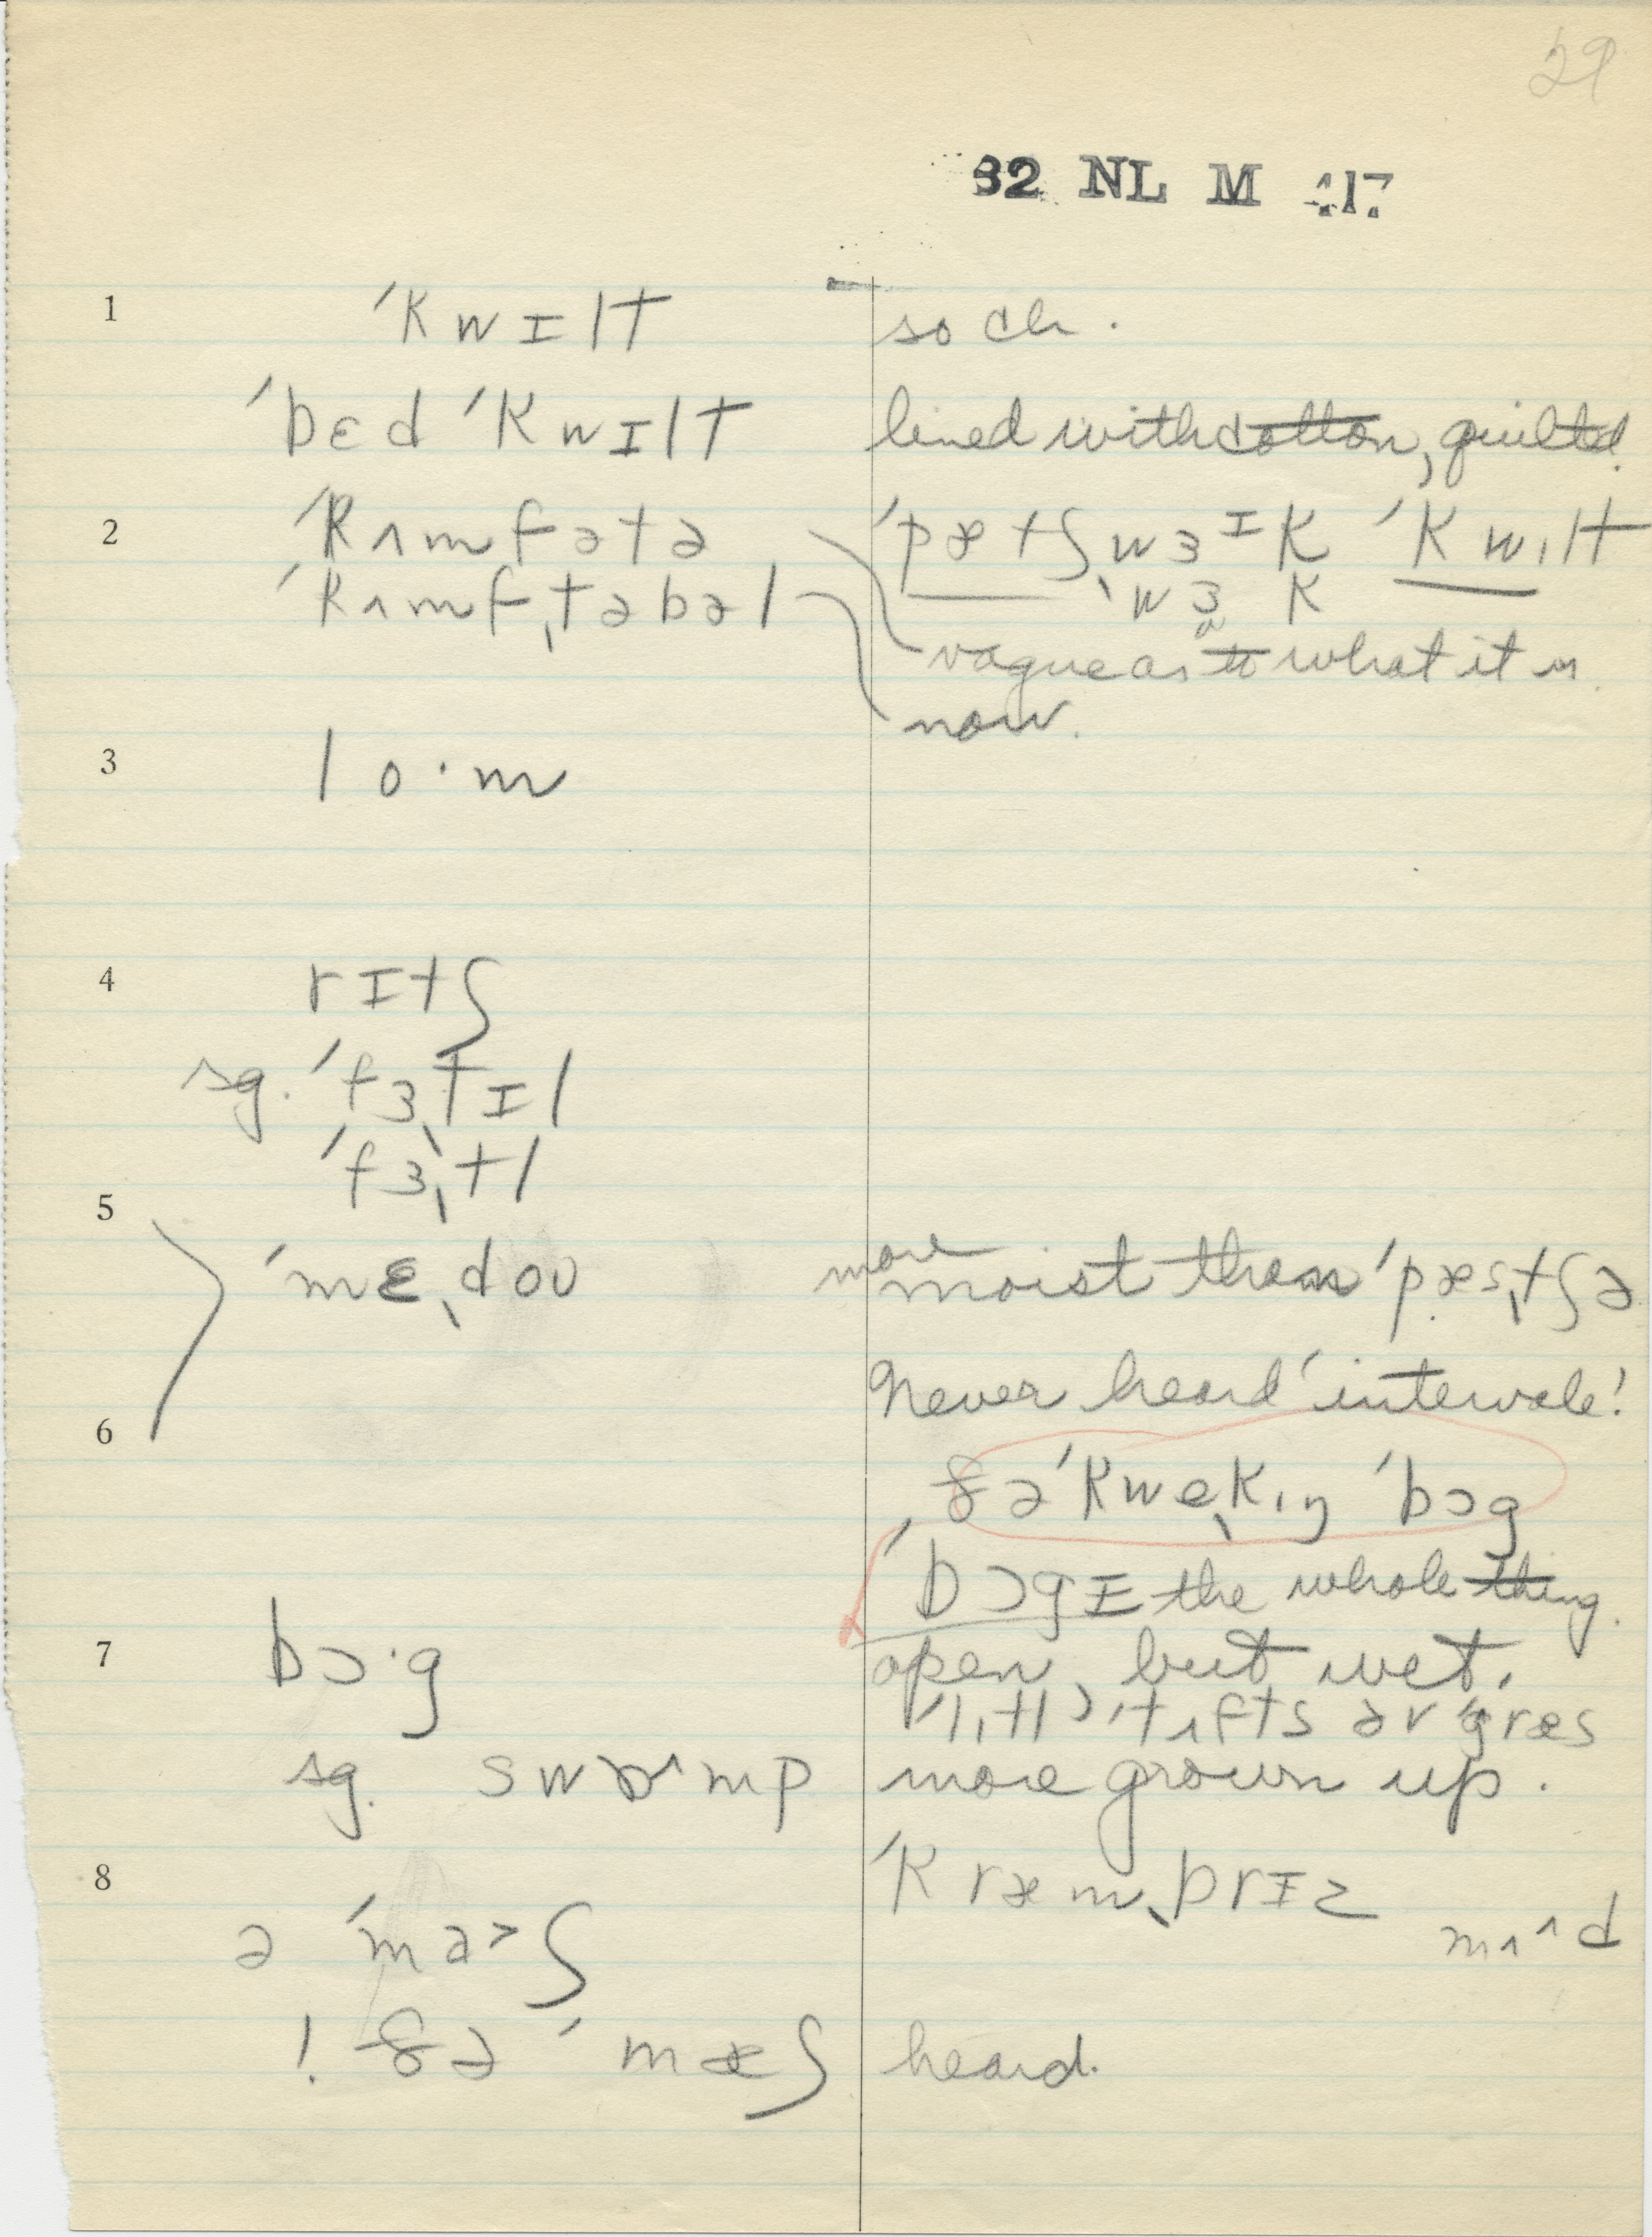 29
32 NL M 417
1 ˈkwɪlt so ch.
ˈbɛd ˈkwɪlt lined with cotton, quilted.
2 ˈkʌmfətə ˈpætʃwɜᶦk ˈkwɪlt
ˈkʌmfˌtəbəl ˌwɜk
vague as to what it is
now.
3 lo·m
4 rɪtʃ
sg. ˈfɜˌtɪl
ˈfɜˌtl
5 ˈmɛˌdoʊ more moist than ˈpæsˌtʃə
Never heard 'intervale!
6 ðə ˈkweˌkɪŋ ˈbɔg
ˈbɔgɪ the whole thing.
7 bɔ·g open, but wet.
tʌfts əv græs
sg. swɒmp more grown up.
8 ˈkræmˌbrɪz
mʌd
ə ˈmaʃ
! ðə ˈmæʃ heard.